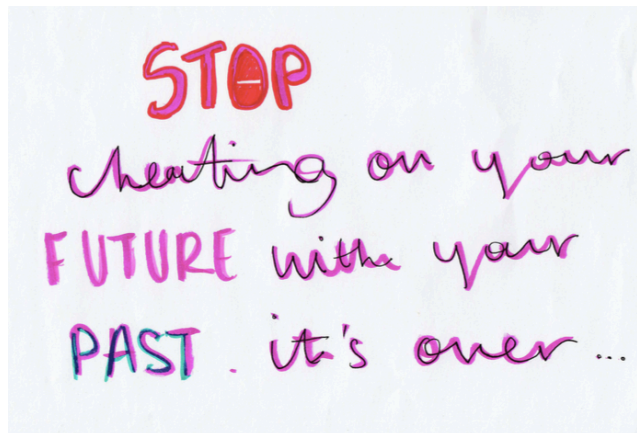 STOP
cheating on your
FUTURE with your
PAST. it's over...